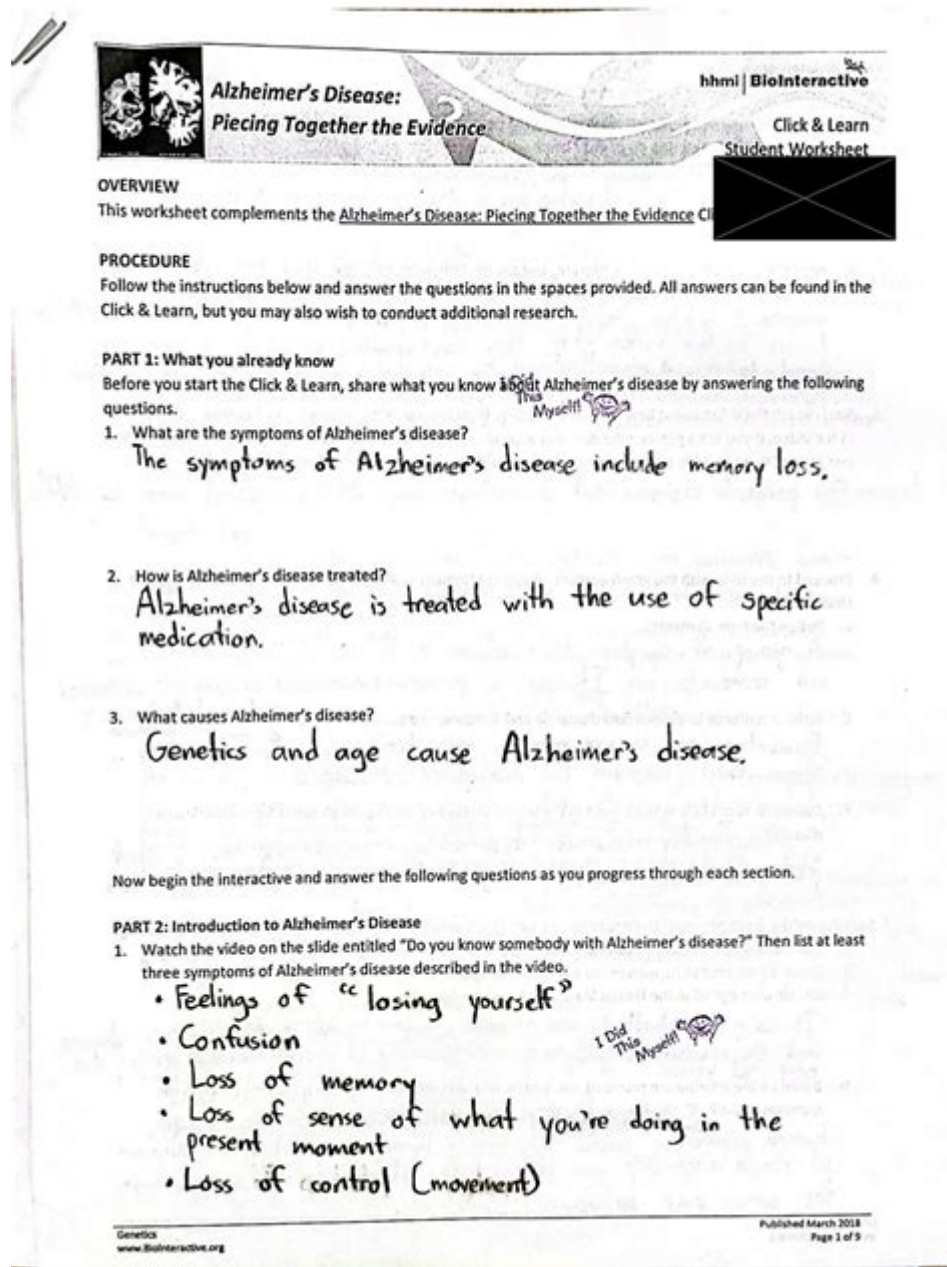 Alzheimer's Disease:
Piecing Together the Evidence
hhmi | BioInteractive
Click & Learn
Student Worksheet
OVERVIEW
This worksheet complements the Alzheimer's Disease: Piecing Together the Evidence Cl
PROCEDURE
Follow the instructions below and answer the questions in the spaces provided. All answers can be found in the
Click & Learn, but you may also wish to conduct additional research.
PART 1: What you already know
Before you start the Click & Learn, share what you know about Alzheimer's disease by answering the following
questions.
I Did
This
Myself!
1. What are the symptoms of Alzheimer's disease?
The symptoms of Alzheimer's disease include memory loss.
2. How is Alzheimer's disease treated?
Alzheimer's disease is treated with the use of specific
medication.
3. What causes Alzheimer's disease?
Genetics and age cause Alzheimer's disease.
Now begin the interactive and answer the following questions as you progress through each section.
PART 2: Introduction to Alzheimer's Disease
1. Watch the video on the slide entitled "Do you know somebody with Alzheimer's disease?" Then list at least
three symptoms of Alzheimer's disease described in the video.
• Feelings of "losing yourself"
• Confusion
I Did
This
Myself!
• Loss of memory
• Loss of sense of what you're doing in the
present moment
• Loss of control (movement)
Genetics
www.BioInteractive.org
Published March 2018
Page 1 of 9